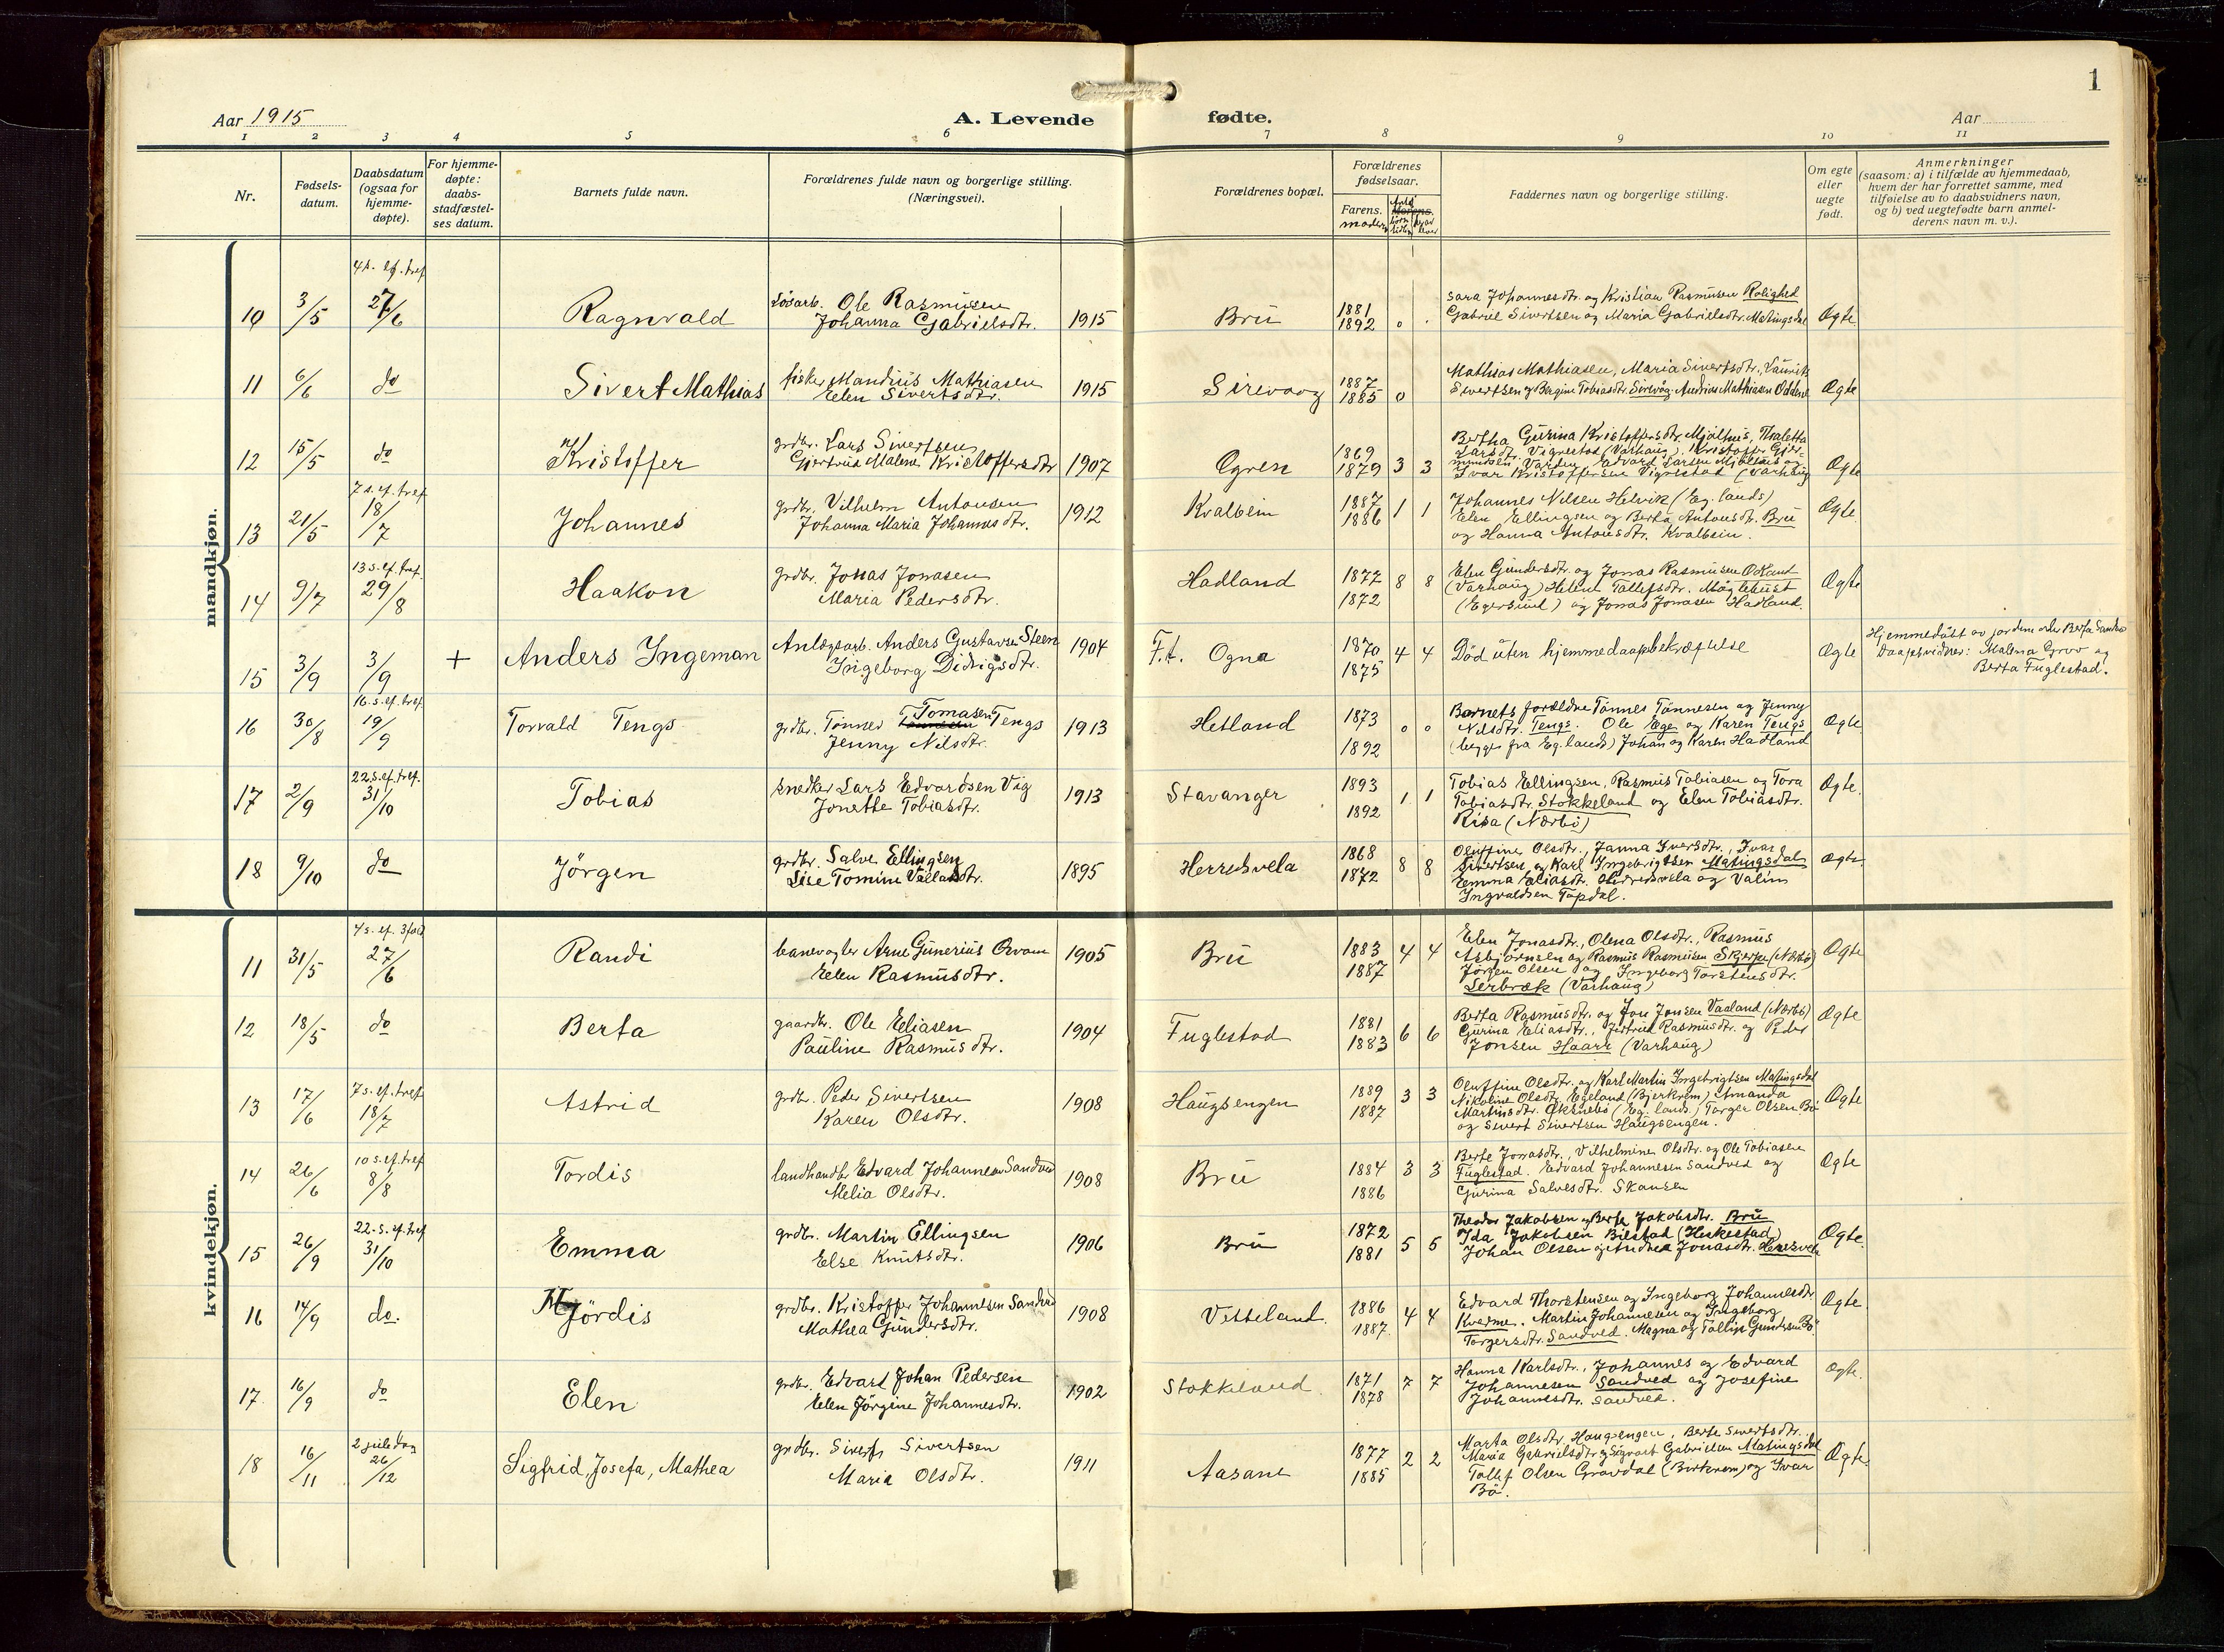 1
Aar 1915
A. Levende
fødte.
Aar
1 2 3 4 5 6 7 8 9 10 11
Nr.
Fødsels-
datum.
Daabsdatum
(ogsaa for
hjemme-
døpte).
For hjemme-
døpte:
daabs-
stadfæstel-
ses datum.
Barnets fulde navn.
Forældrenes fulde navn og borgerlige stilling.
(Næringsvei).
Forældrenes bopæl.
Forældrenes
fødselsaar.
Farens.
Morens.
moders
Faddernes navn og borgerlige stilling.
Om egte
eller
uegte
født.
Anmerkninger
(saasom: a) i tilfælde av hjemmedaab,
hvem der har forrettet samme, med
tilføielse av to daabsvidners navn,
og b) ved uegtefødte barn anmel-
derens navn m. v.).
mandkjøn.
4 s. ef. tref
10 3/5 27/6 Ragnvald
Løsarb. Ole Rasmusen
Johanna Gabrielsdtr. 1915
Brü 1881 1892 0
Sara Johannesdtr. og Kristian Rasmusen Rolighed
Gabriel Sivertsen og Maria Gabrielsdtr. Matingsdal
Ægte
11 6/6 do Sivert Mathias
fisker Mandius Mathiasen
Elen Sivertsdtr. 1915
Sirevaag 1887 1885 0
Mathias Mathiasen, Maria Sivertsdtr., Laurits
Sivertsen og Bergine Tobiasdtr. Sirevåg, Andrias Mathiasen
Ægte
12 15/5 do Kristoffer
grdbr. Lars Sivertsen
Gjertrud Malene Kristoffersdtr 1907
Ogren 1869 1879 3 3
Bertha Gurina Kristoffersdtr. Mjølhus, Thaletta
Larsdtr. Vigrestad (Varhaug). Kristoffer
Varden, Edvard Larsen Mjølhus og
Ivar Kristoffersen Vigrestad (Varhaug)
Ægte
7 s. ef. tref
13 21/5 18/7 Johannes
grdbr. Vilhelm Antonsen
Johanna Maria Johannesdtr. 1912
Kvalbein 1887 1886 1 1
Johannes Nilsen Helvik (Eg. lands)
Elen Ellingsen og Berta Antonsdtr. Brü
og Hanna Antonsdtr. Kvalbein.
Ægte
13 s. ef. tref.
14 9/7 29/8 Haakon
grdbr. Jonas Jonasen
Maria Pedersdtr.
Hadland 1872 1872 8 8
Elen Gundersdtr. og Jonas Rasmusen Odland
(Varhaug) Helene Tollefsdtr. Møgletuet
(Egersund) og Jonas Jonasen Hadland.
Ægte
15 3/9 3/9 + Anders Ingeman
Anlægsarb. Anders Gustavsen Steen
Ingeborg Didrigsdtr. 1904
F.t. Ogna 1870 1875 4 4
Død uten hjemmedaapsbekræftelse
Ægte
Hjemmedøbt av jordemoder Berta Sandve
Daapsvidner: Malena Grov og
Berta Fuglestad.
16. s. ef. tref.
16 30/8 19/9 Torvald Tengs
grdbr. Tønnes Tomasen Tengs
Jenny Nilsdtr. 1913
Hetland 1873 1892 0 0
Barnets forældre Tønnes Tønnesen og Jenny
Nilsdtr. Tengs. Ole Ege og Karen Tengs
(begge fra Eg. lands) Johan og Karen Hadland
Ægte
22. s. ef. tref.
17 2/9 31/10 Tobias
snedker Lars Edvardsen Vig
Jonette Tobiasdtr. 1913
Stavanger 1893 1892 1 1
Tobias Ellingsen, Rasmus Tobiasen og Tora
Tobiasdtr. Stokkeland og Elen Tobiasdtr.
Risa (Nærbö)
Ægte.
18 9/10 do Jörgen
grdbr. Salve Ellingsen
Lise Tomine 1895
Herredsvela 1868 1872 8 8
Oluffine Olsdtr., Janna Iversdtr., Ivar
Sivertsen og Karl Ingebrigtsen Matingsdal
Emma Eliasdtr. Herredsvela og Valin
Ingvaldsen Tapdal.
Ægte
kvindekjøn.
4 s. ef. 3fol
11 31/5 27/6 Randi
banevogter Arne Gunerius Orvam
Elen Rasmusdtr. 1905
Brü 1883 1887 4 4
Elen Jonasdtr., Olena Olsdtr., Rasmus
Asbjørnsen og Rasmus Rasmusen Skjerpe (Nærbö)
Jörgen Olsen og Ingeborg Torstensdtr.
Lerbræk (Varhaug)
Ægte
12 18/5 do Berta
gaardbr. Ole Eliasen
Pauline Rasmusdtr. 1904
Fuglestad 1881 1883 6 6
Berta Rasmusdtr. og Jon Jonsen Vaaland (Nærbö)
Gurina Eliasdtr., Jertrud Rasmusdtr. og Peder
Jonsen Haarr (Varhaug)
Ægte
7 s. ef. tref
13 17/6 18/7 Astrid
grdbr. Peder Sivertsen
Karen Olsdtr. 1908
Haugsengen 1889 1887 3 3
Oluffine Olsdtr. og Karl Martin Ingebrigtsen Matingsdal
Nikoline Olsdtr. Egeland (Bjerkrem) Amanda
Martinsdtr. (Eg. lands.) Torger Olsen Bö
og Sivert Sivertsen Haugsengen.
Ægte
10 s. ef. tref
14 26/6 8/8 Tordis
landhandler Edvard Johannesen Sandved
Melia Olsdtr. 1908
Brü 1884 1886 3 3
Berte Jonasdtr., Vilhelmine Olsdtr. og Ole Tobiasen
Fuglestad. Edvard Johannesen Sandved og
Gurina Salvesdtr. Skansen
Ægte
22. s. ef. tref
15 26/9 31/10 Emma
grdbr. Martin Ellingsen
Else Knutsdtr. 1906
Brü 1872 1881 5 5
Theodor Jakobsen og Berte Jakobsdtr. Brü
Ida Jakobsen Bilstad (Heskestad)
Johan Olsen og Andrea Jonasdtr. Herresvela
Ægte.
16 14/9 do. Hjördis
grdbr. Kristoffer Johannesen Sandved
Mathea Gundersdtr. 1908
Vetteland. 1886 1887. 4 4
Edvard Thorstensen og Ingeborg Johannesdtr
Kverme. Martin Johannesen og Ingeborg
Torgersdtr. Sandved. Magna og Tollip Gundersen Bö
Ægte.
17. 16/9 do Elen
grdbr. Edvard Johan Pedersen
Elen Jörgine Johannesdtr. 1902
Stokkeland. 1871 1878 7 7
Hanna Karlsdtr., Johannes og Edvard
Johannesen Sandved og Josefine
Johannesdtr. Sandved.
Ægte.
2 juledag
18 16/11 26/12 Sigfrid, Josefa, Mathea
grdbr. Siverts Sivertsen
Maria Olsdtr. 1911
Aasane 1877 1885 2 2
Marta Olsdtr. Haugsengen, Berte Sivertsdtr.
Maria Gabrielsdtr og Sigvart Gabrielsen Matingsdal
Tollef Olsen Gravdal (Birkrem) og Ivar
Bö.
Ægte.